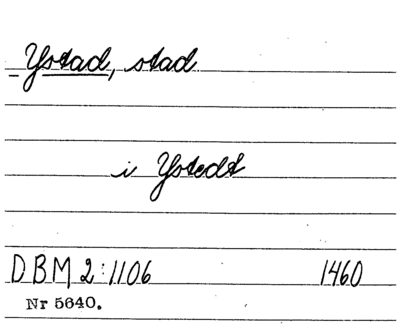 Ystad, stad
i Ystedt
DBM 2:1106 1460
Nr 5640.